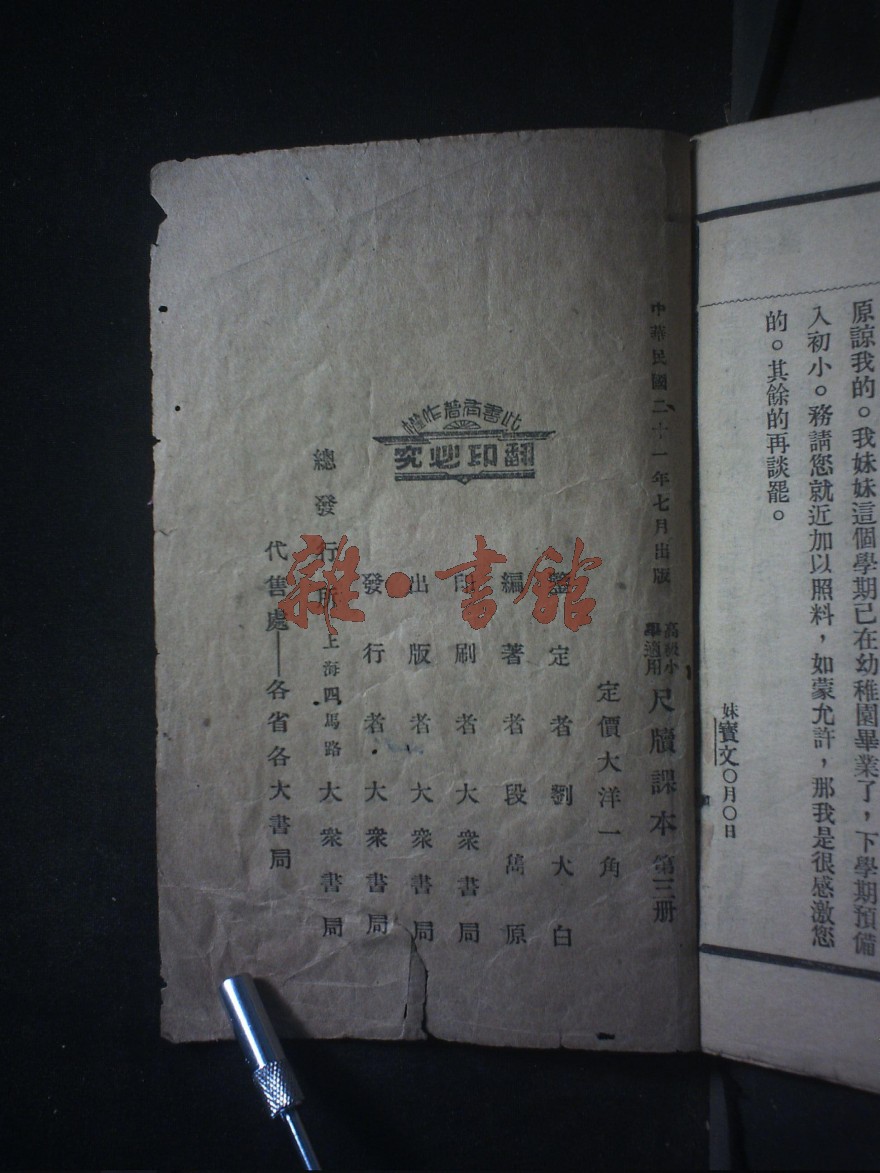 原諒我的。我妹妹這個學期已在幼稚園畢業了，下學期預備
入初小。務請您就近加以照料，如蒙允許，那我是很感激您
的。其餘的再談罷。
妹寶文〇月〇日
中華民國二十一年七月出版
高級小
學適用
尺牘課本 第三册
定價大洋一角
鑒定者 劉大白
編著者 段萬原
印刷者 大衆書局
出版者 大衆書局
發行者 大衆書局
總發行所 上海四馬路 大衆書局
代售處——各省各大書局
此書有著作權
翻印必究
雜·書館